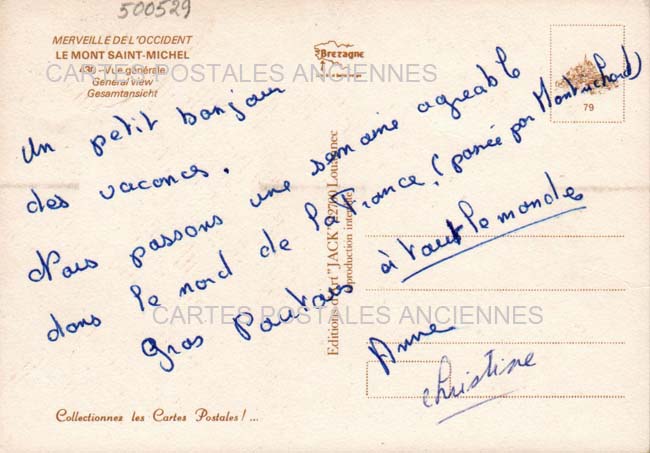 500529
MERVEILLE DE L'OCCIDENT
LE MONT SAINT-MICHEL
430 - Vue générale
General view
Gesamtansicht
Bretagne
79
CARTES POSTALES ANCIENNES
Un petit bonjour
des vacances.
Nous passons une semaine agréable
dans le nord de la France. (passée par Montrichard)
Gros Poutous à tout le monde
Anne
Christine
Editions d'Art "JACK" 22700 Louannec
reproduction interdite
CARTES POSTALES ANCIENNES
Collectionnez les Cartes Postales ! ...